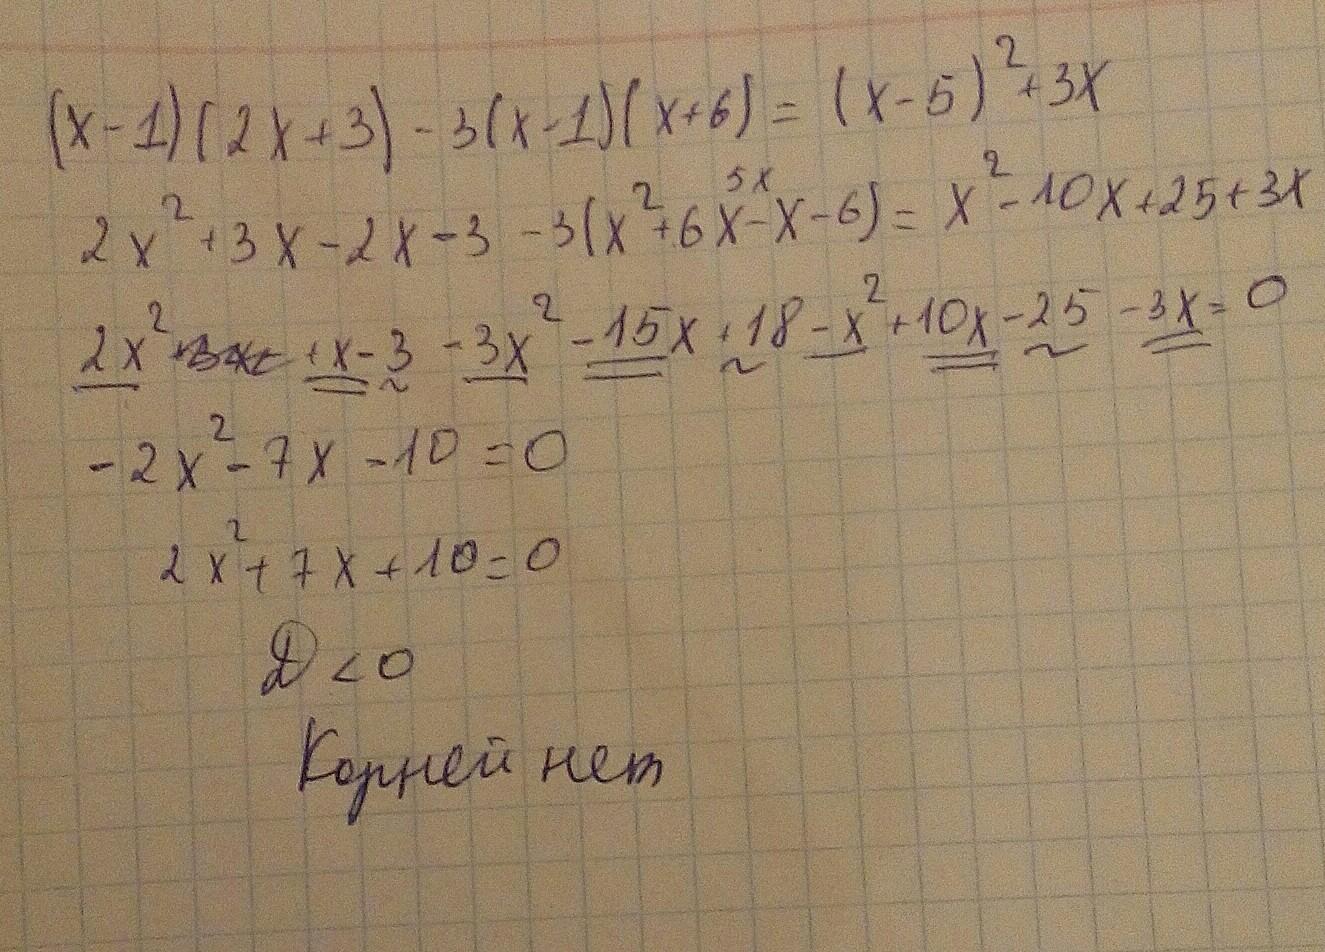 (x-1)(2x+3)-3(x-1)(x+6)=(x-5)²+3x
5x
2x²+3x-2x-3-3(x²+6x-x-6)=x²-10x+25+3x
2x² +x-3-3x²-15x+18-x²+10x-25-3x=0
-2x²-7x-10=0
2x²+7x+10=0
D<0
Корней нет